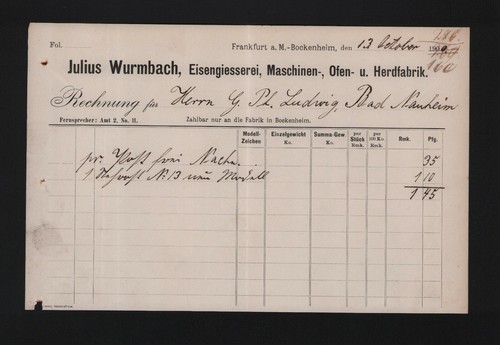 Fol.
Frankfurt a. M.-Bockenheim, den 13 October 190
186.
160
Julius Wurmbach, Eisengiesserei, Maschinen-, Ofen- u. Herdfabrik.
Rechnung für Herrn G. Ph. Ludwig, Bad Nauheim
Fernsprecher: Amt 2. No. 11.
Zahlbar nur an die Fabrik in Bockenheim.
Modell-Zeichen Einzelgewicht Ko. Summa-Gew. Ko. per Stück Rmk. per 100 Ko. Rmk. Rmk. Pfg.
pr. Post frei Nachn. 35
1 No 13 neu Modell 1 10
1 45